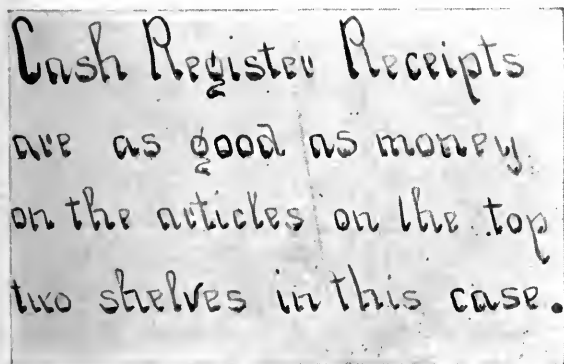 Cash Register Receipts
are as good as money
on the articles on the top
two shelves in this case.